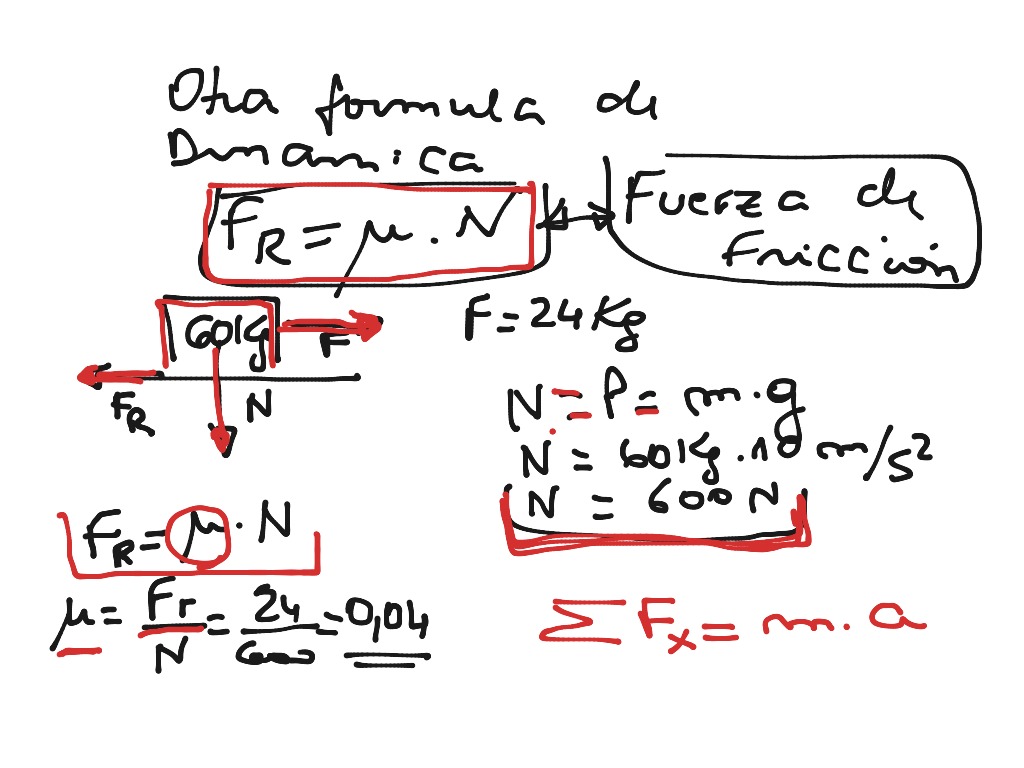 Otra formula de
Dinamica
F_R = μ . N
Fuerza de
Fricción
60Kg
F
F = 24 Kg
F_R
N
N = P = m.g
N = 60Kg . 10 m/s²
N = 600 N
F_R = μ . N
μ = Fr/N = 24/600 = 0,04
Σ F_x = m . a